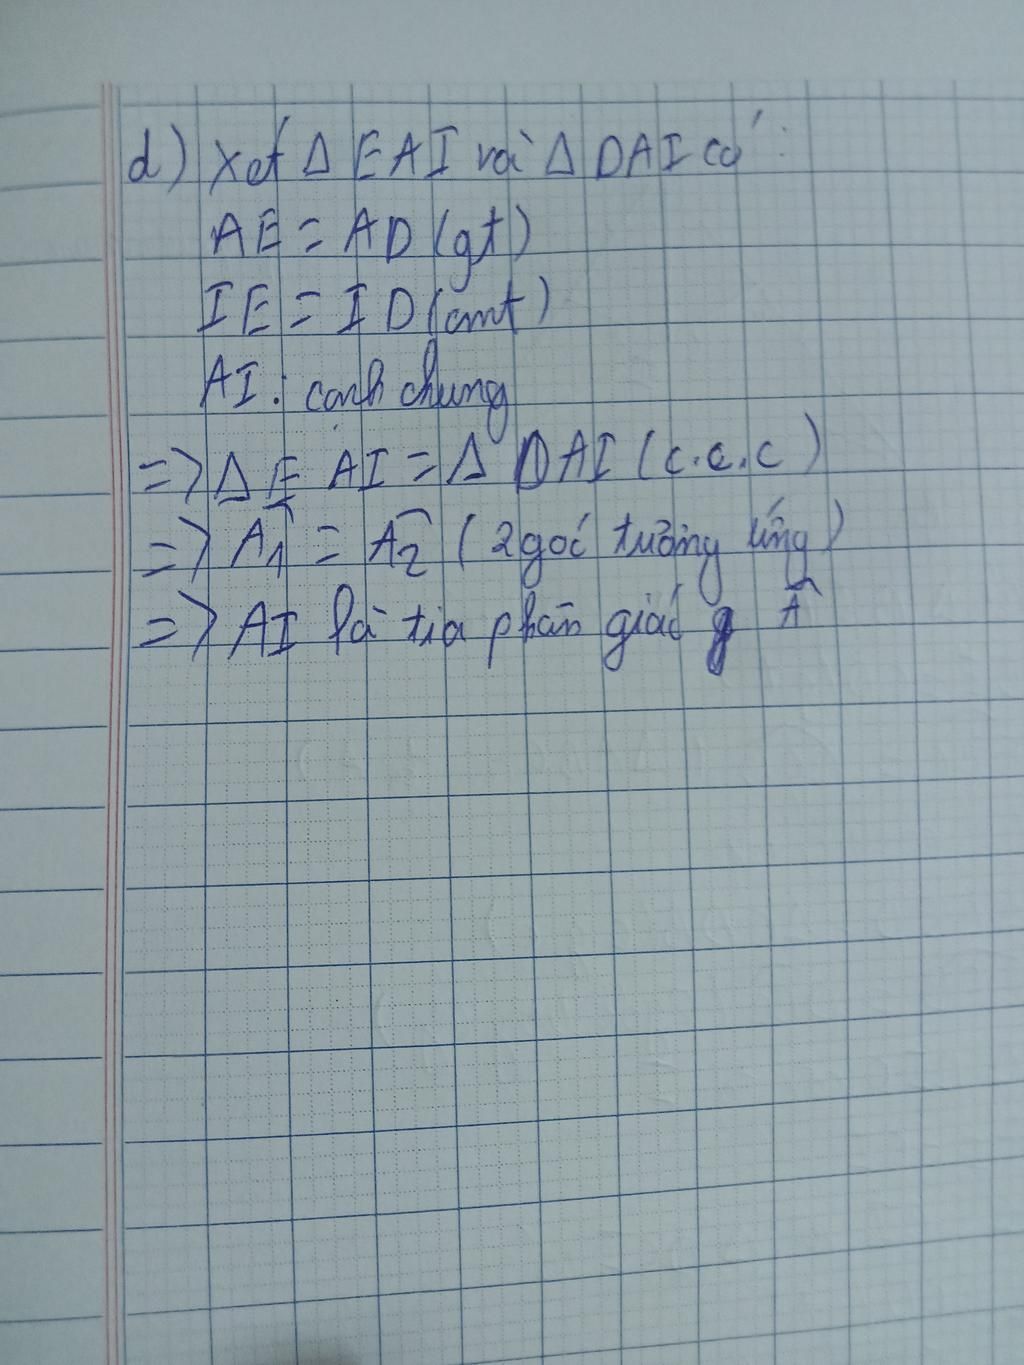 d) Xét Δ EAI và Δ DAI có:
AE = AD (gt)
IE = ID (cmt)
AI: cạnh chung
=> Δ EAI = Δ DAI (c.c.c)
=> Â1 = Â2 (2 góc tương ứng)
=> AI là tia phân giác Â